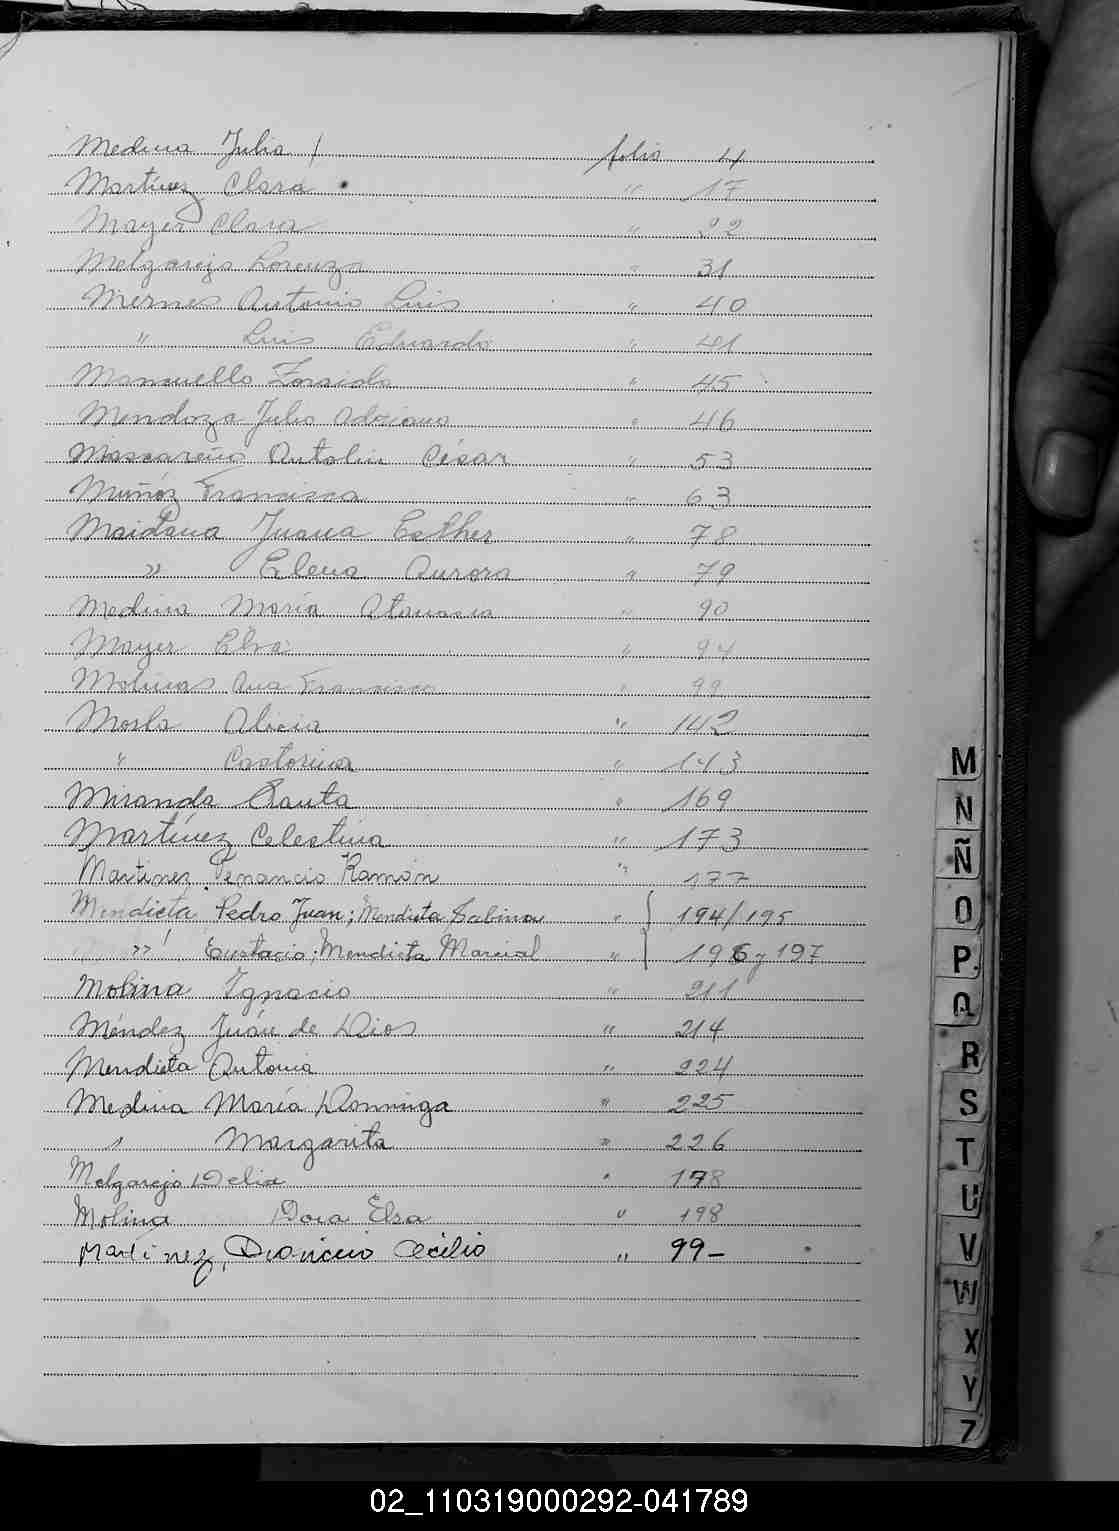 Medina Julia / folio 4
Martínez Clara " 17
Mayer Clara " 22
Melgarejo Lorenza " 31
Mernes Antonio Luis " 40
" Luis Eduardo " 41
Mancuello Zoraida " 45
Mendoza Julio Adriano " 46
Mascareño Antolin César " 53
Muñóz Francisca " 63
Maidana Juana Esther " 78
" Elena Aurora " 79
Medina María Atanasia " 90
Mayer Elva " 94
Molinas Ana Francisca " 99
Morla Alicia " 142
" Castorina " 143
Miranda Santa " 169
Martínez Celestina " 173
Martinez Venancio Ramón " 177
Mendieta Pedro Juan; Mendieta Sabina " 194/195
" Eustacio; Mendieta Marcial " 196 y 197
Molina Ignacio " 211
Méndez Juán de Dios " 214
Mendieta Antonia " 224
Medina María Dominga " 225
" Margarita " 226
Melgarejo Delia " 178
Molina Dora Elsa " 198
Martinez, Dionicio Cecilio " 99-
M
N
Ñ
O
P
Q
R
S
T
U
V
W
X
Y
Z
02_110319000292-041789